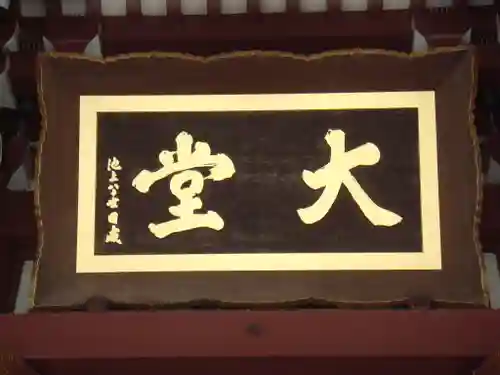 大堂
池上八十世日威